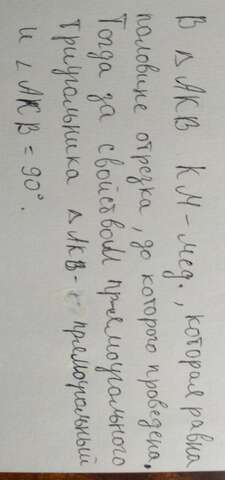 В △ АКВ КМ - мед., которая равна
половине отрезка, до которого проведена.
Тогда за свойством прямоугольного
триугольника △ АКВ - прямоугольный
и ∠ АКВ = 90°.